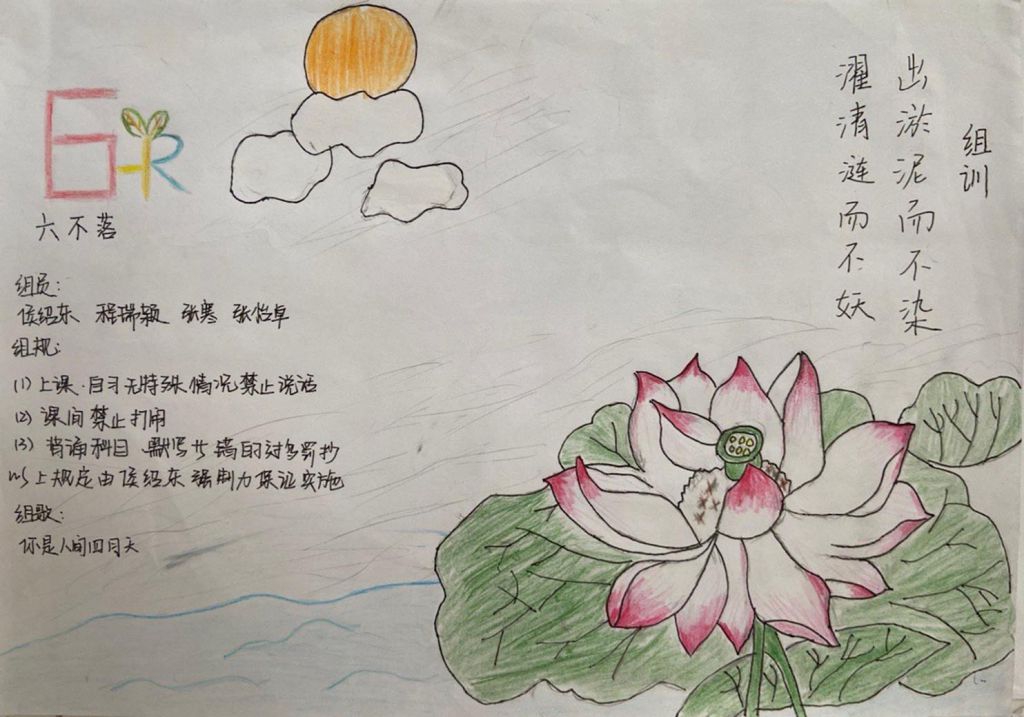 6
R
六不落
组员:
侯绍东 程瑞颖 张寒 张怡卓
组规:
(1) 上课.自习无特殊情况禁止说话
(2) 课间禁止打闹
(3) 背诵科目 默写
以上规定由侯绍东强制力保证实施
组歌:
你是人间四月天
组训
出淤泥而不染
濯清涟而不妖